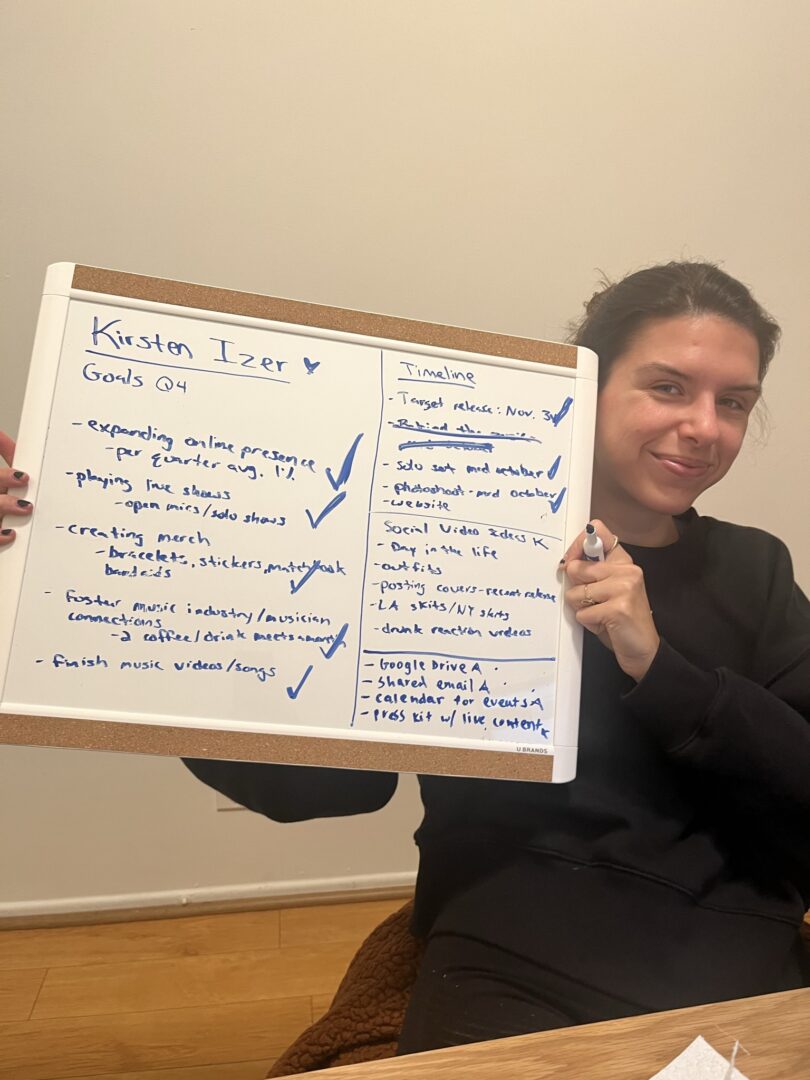 Kirsten Izer
Goals Q4
- expanding online presence
- per quarter avg. 1%
- playing live shows
- open mics/solo shows
- creating merch
- bracelets, stickers, matchbook
bandaids
- foster music industry/musician
connections
- 2 coffee/drink meets a month
- finish music videos/songs
Timeline
- Target release: Nov.
- Behind the
- solo set mid october
- photoshoot - mid october
- website
Social Video Ideas K
- Day in the life
- outfits
- posting covers - recent release
- LA skits/NY skits
- drunk reaction videos
- Google Drive A
- Shared email A
- calendar for events A
- press kit w/ live content K
U BRANDS